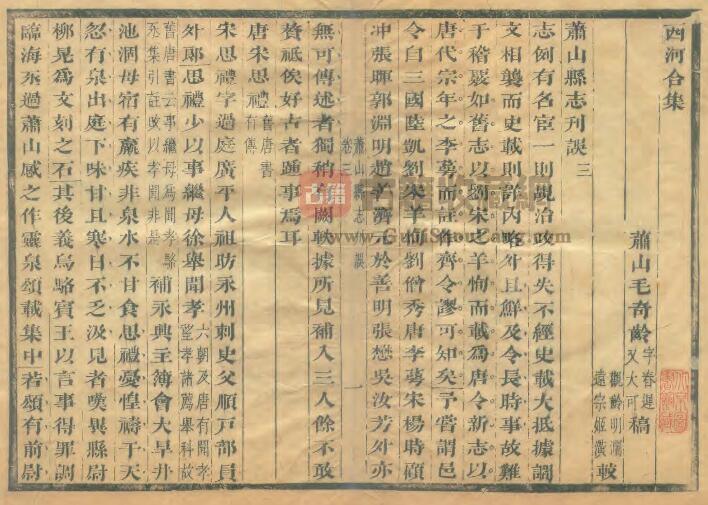 西河合集
蕭山毛奇齡字春遲又大可稿
蕭山縣志刊誤三
遠宗姬潢較
志例有名宦一則覘治政得失不經史載大抵據調
文相襲而史載則詳內略外且鮮及令長時事故難
于稽覈如舊志以劉宋之羊恂而載爲唐令新志以
唐代宗年之李蕚而註作齊令謬可知矣予嘗謂邑
令自三國陸凱劉宋羊恂劉僧秀唐李蕚宋楊時顧
冲張暉郭淵明趙善濟元於善明張懋吳汝芳外亦
蕭山縣志刊誤
卷三
一
無可傳述者獨稍有闕軼據所見補入三人餘不敢
贅祇俟好古者踵事焉耳
唐宋思禮舊唐書有傳
宋思禮字過庭廣平人祖昉永州刺史父順戶部員
外郎思禮少以事繼母徐舉聞孝六朝及唐有聞孝望孝諸薦舉科故
舊唐書云事繼母爲聞孝駱丞集引註改以孝聞非是補永興主簿會大旱井
池涸母宿有羸疾非泉水不甘食思禮憂惶禱于天
忽有泉出庭下味甘且寒日不乏汲見者嘆異縣尉
柳晃爲文刻之石其後義烏駱賓王以言事得罪調
臨海丞過蕭山感之作靈泉頌載集中若頌有前尉
古籍收藏網
www.GuJiShouCang.com